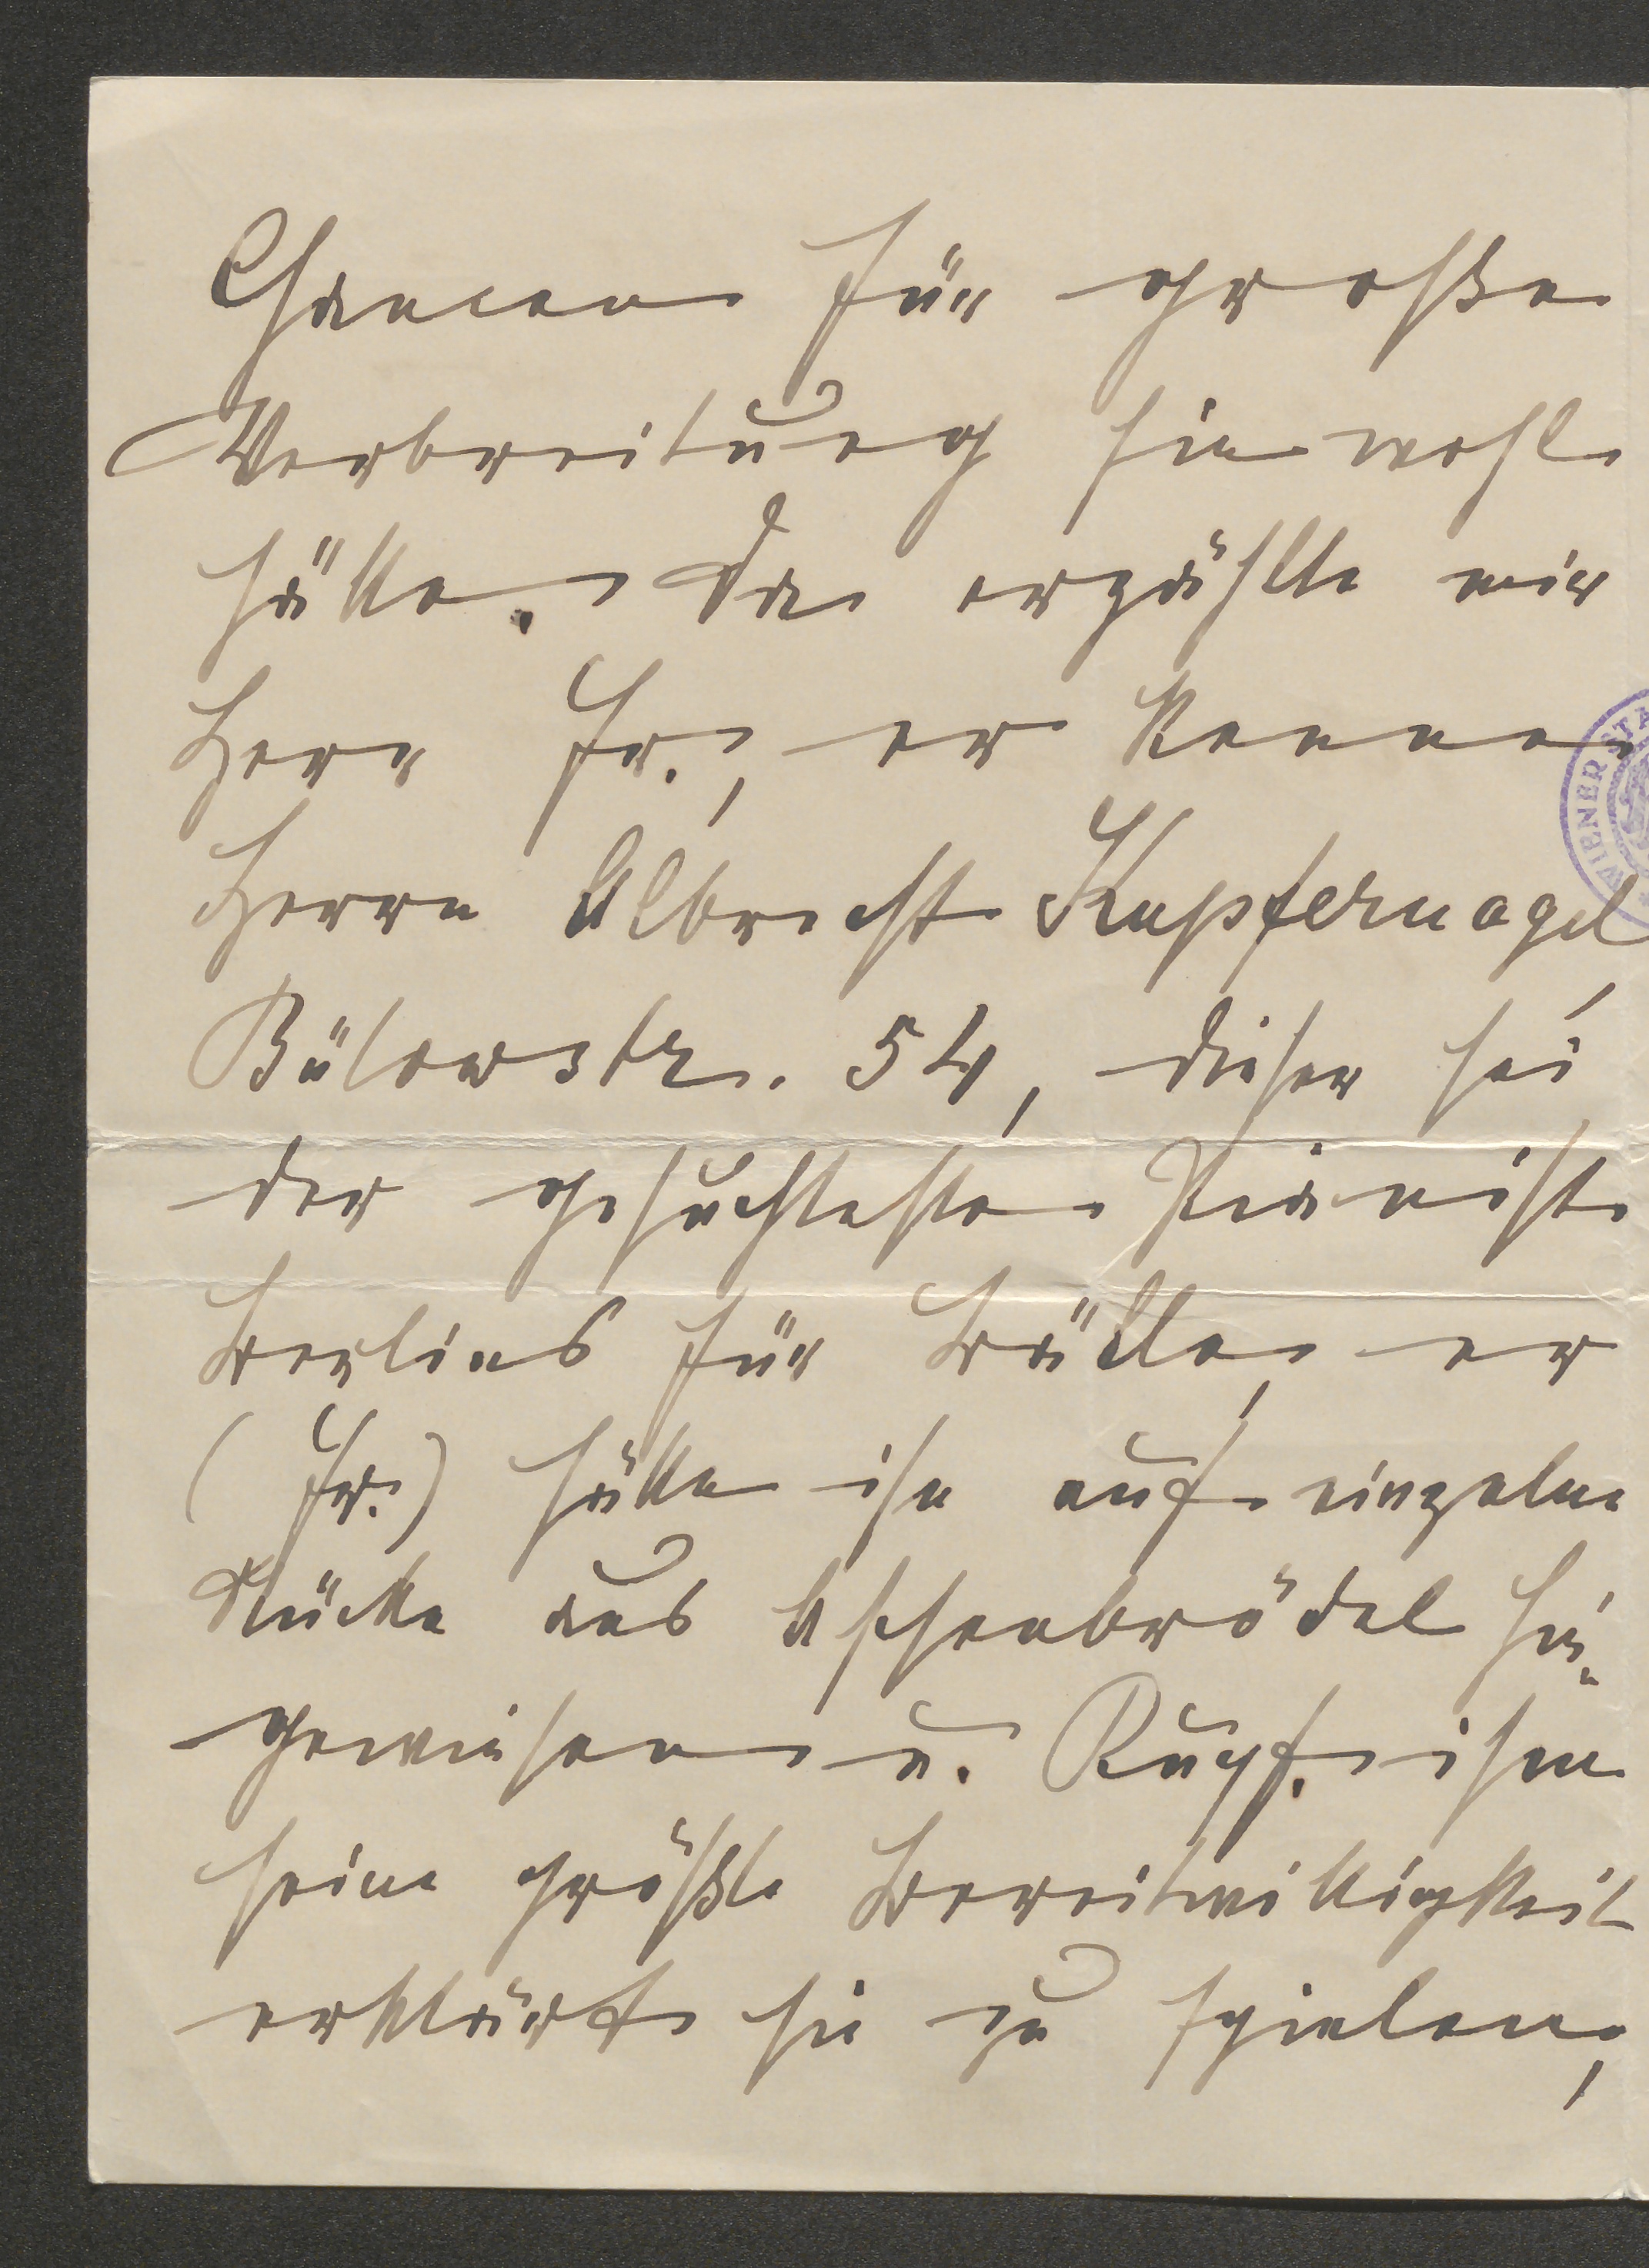 Chancen für große
Verbreitung sie wohl
hätte. Da erzählte mir
Herr Fr., er kenne
Herrn Albrecht Kupfernagel,
Bülowstr. 54, dieser sei
der gesuchteste Pianist
Berlins für Bälle, er
(Fr.) hätte ihn auf einzelne
Stücke aus Aschenbrödel hin-
gewiesen u. Kupf. ihm
seine größte Bereitwilligkeit
erklärt sie zu spielen,
WIENER STA